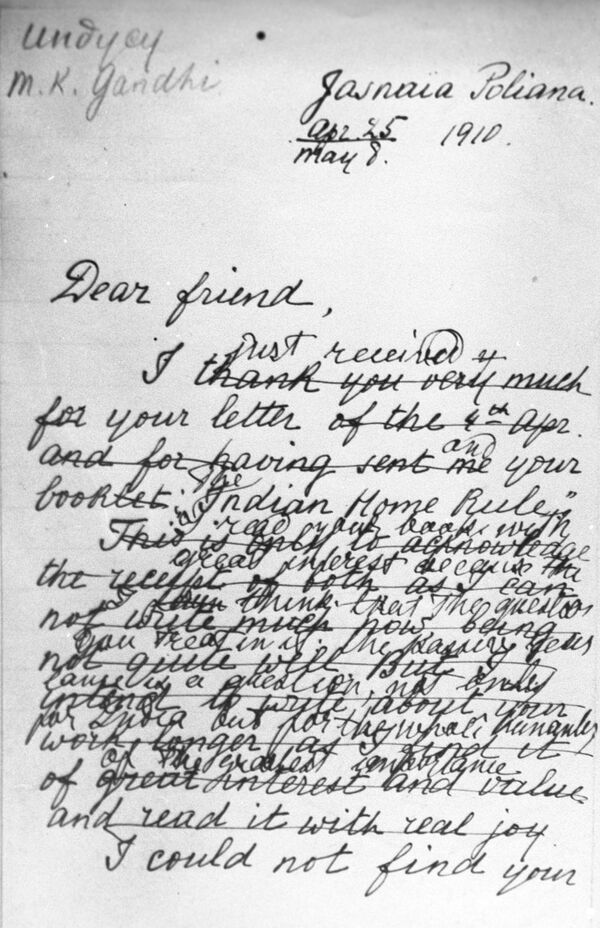 Индусу
M. K. Gandhi
Jasnaïa Poliana.
Apr. 25
May 8. 1910.
Dear friend,
just received
I thank you very much
for your letter of the 4th Apr.
and
and for having sent me your
booklet: "Indian Home Rule"
I read your book with
This is only to acknowledge
great interest because
the receipt of both as I can
think that the question
not write much now being
you treat in it: the passive
not quite well. But I
is a question not only
intend to write about your
for India but for the whole humanity
work longer as I find it
of the greatest importance
of great interest and value
and read it with real joy
I could not find your